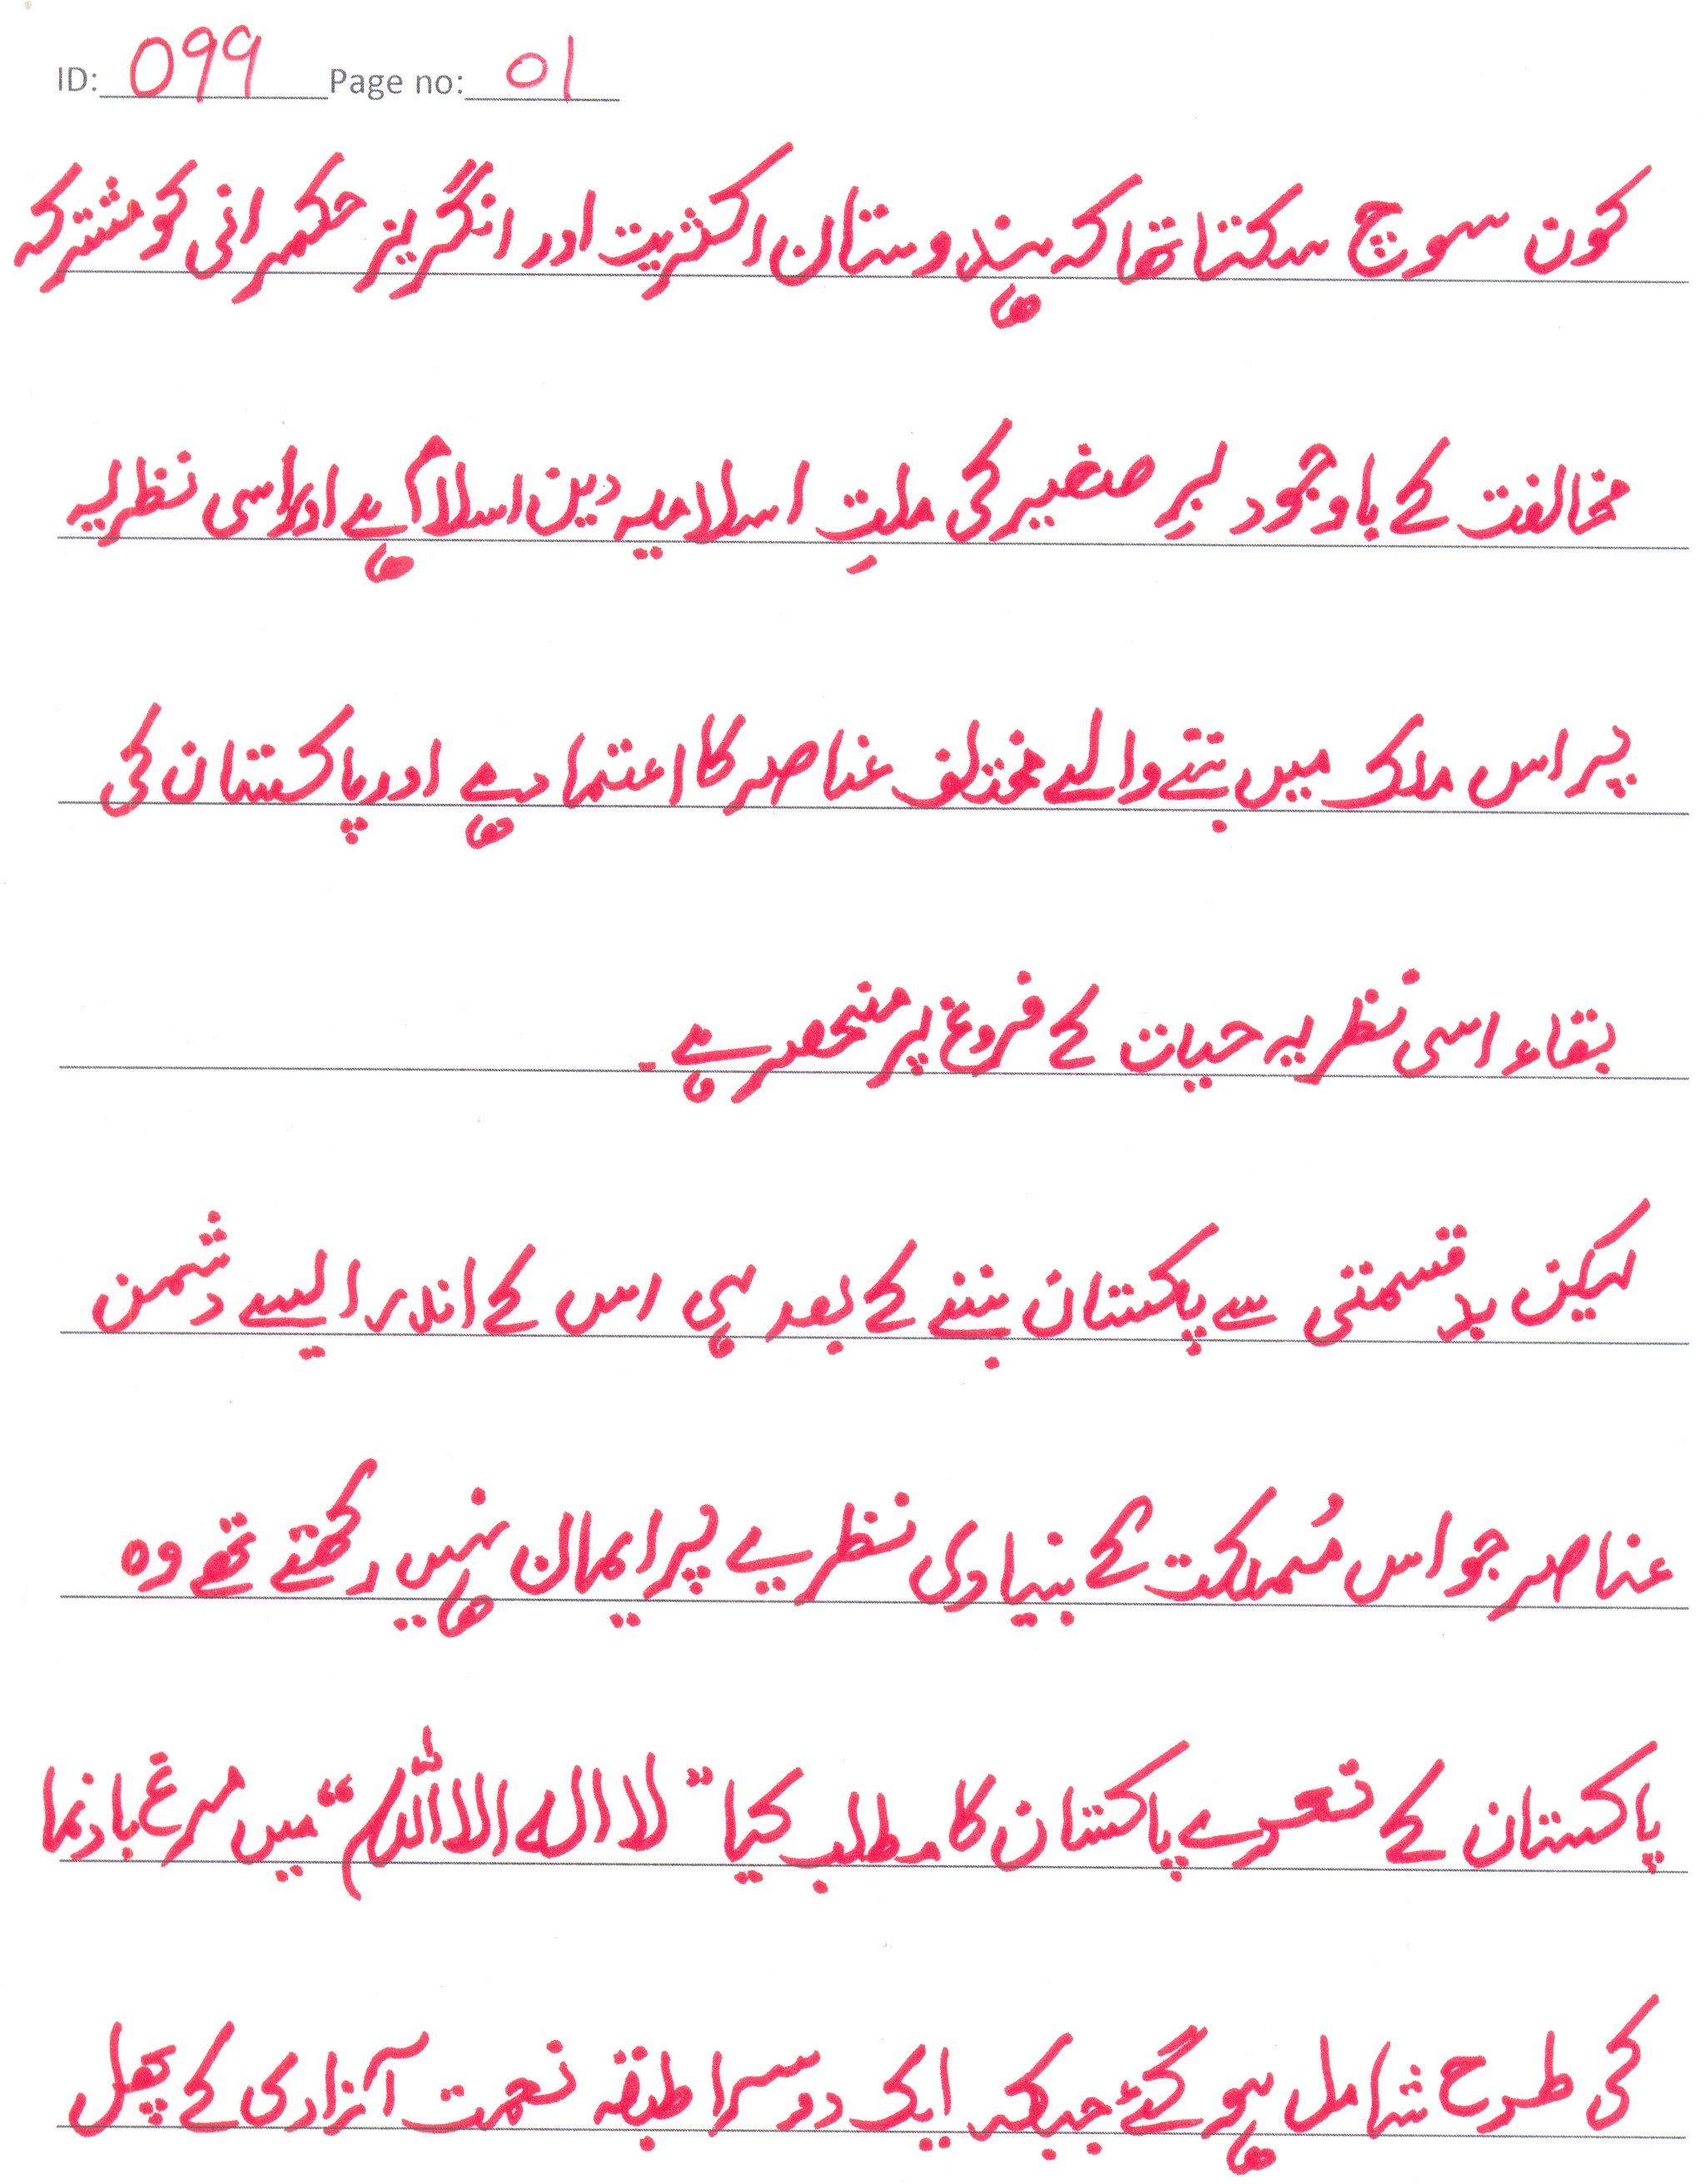 ID: 099 Page no: 01
کون سوچ سکتا تھا کہ ہندوستان اکثریت اور انگریز حکمرانی کو مشترکہ
مخالفت کے باوجود بر صغیر کی ملتِ اسلامیہ دین اسلام ہے اور اسی نظریہ
پر اس ملک میں بتنے والے مختلف عناصر کا اعتماد ہے اور پاکستان کی
بقاء اسی نظریہ حیات کے فروغ پر منحصر ہے۔
لیکن بد قسمتی سے پاکستان بننے کے بعد ہی اس کے اندر ایسے دشمن
عناصر جو اس مُملکت کے بنیادی نظریے پر ایمان نہیں رکھتے تھے وہ
پاکستان کے نعرے پاکستان کا مطلب کیا "لا الہ الا اللہ" میں مرغ بادنما
کی طرح شامل ہو گئے جبکہ ایک دوسرا طبقہ نعمت آزادی کے پھل